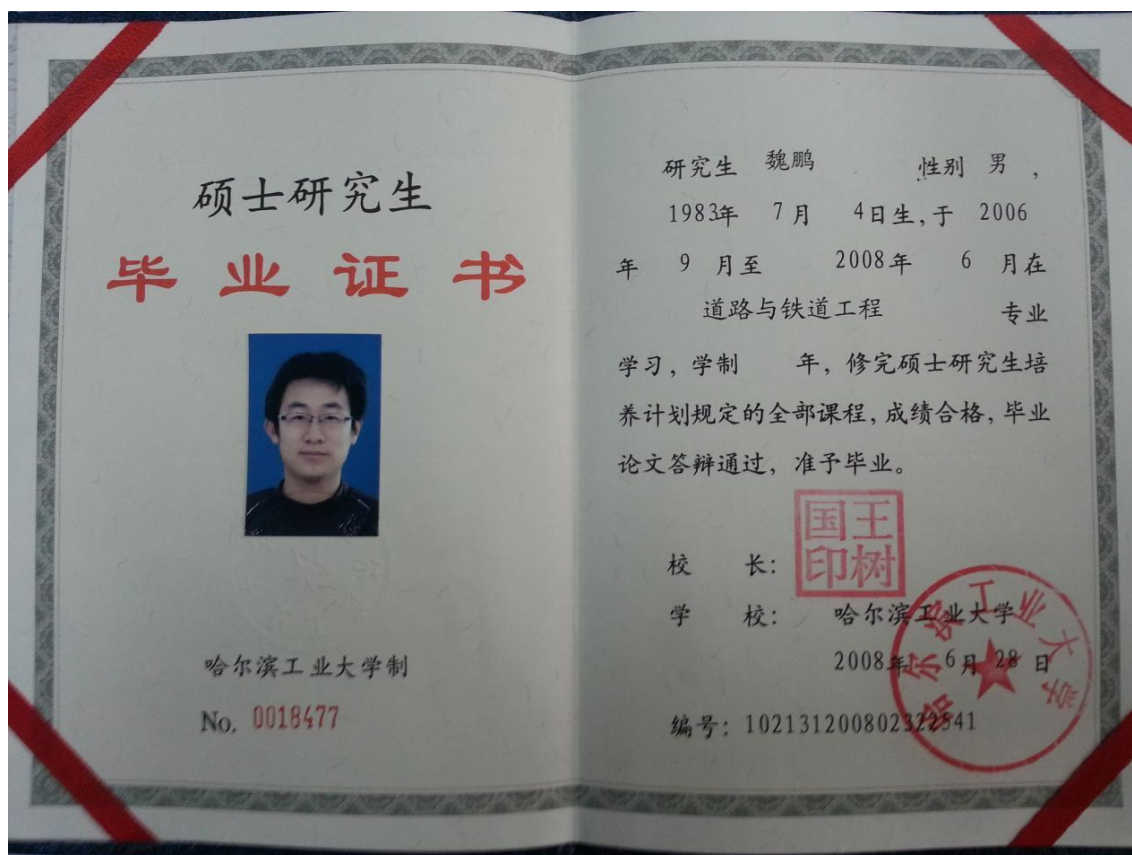 硕士研究生
毕业证书
哈尔滨工业大学制
No. 0018477
研究生 魏鹏 性别 男 ,
1983年 7月 4日生,于 2006
年 9 月至 2008年 6 月在
道路与铁道工程 专业
学习,学制 年,修完硕士研究生培
养计划规定的全部课程,成绩合格,毕业
论文答辩通过,准予毕业。
校 长:
王树国印
学 校: 哈尔滨工业大学
2008年 6月 28 日
编号:102131200802322541
哈尔滨工业大学